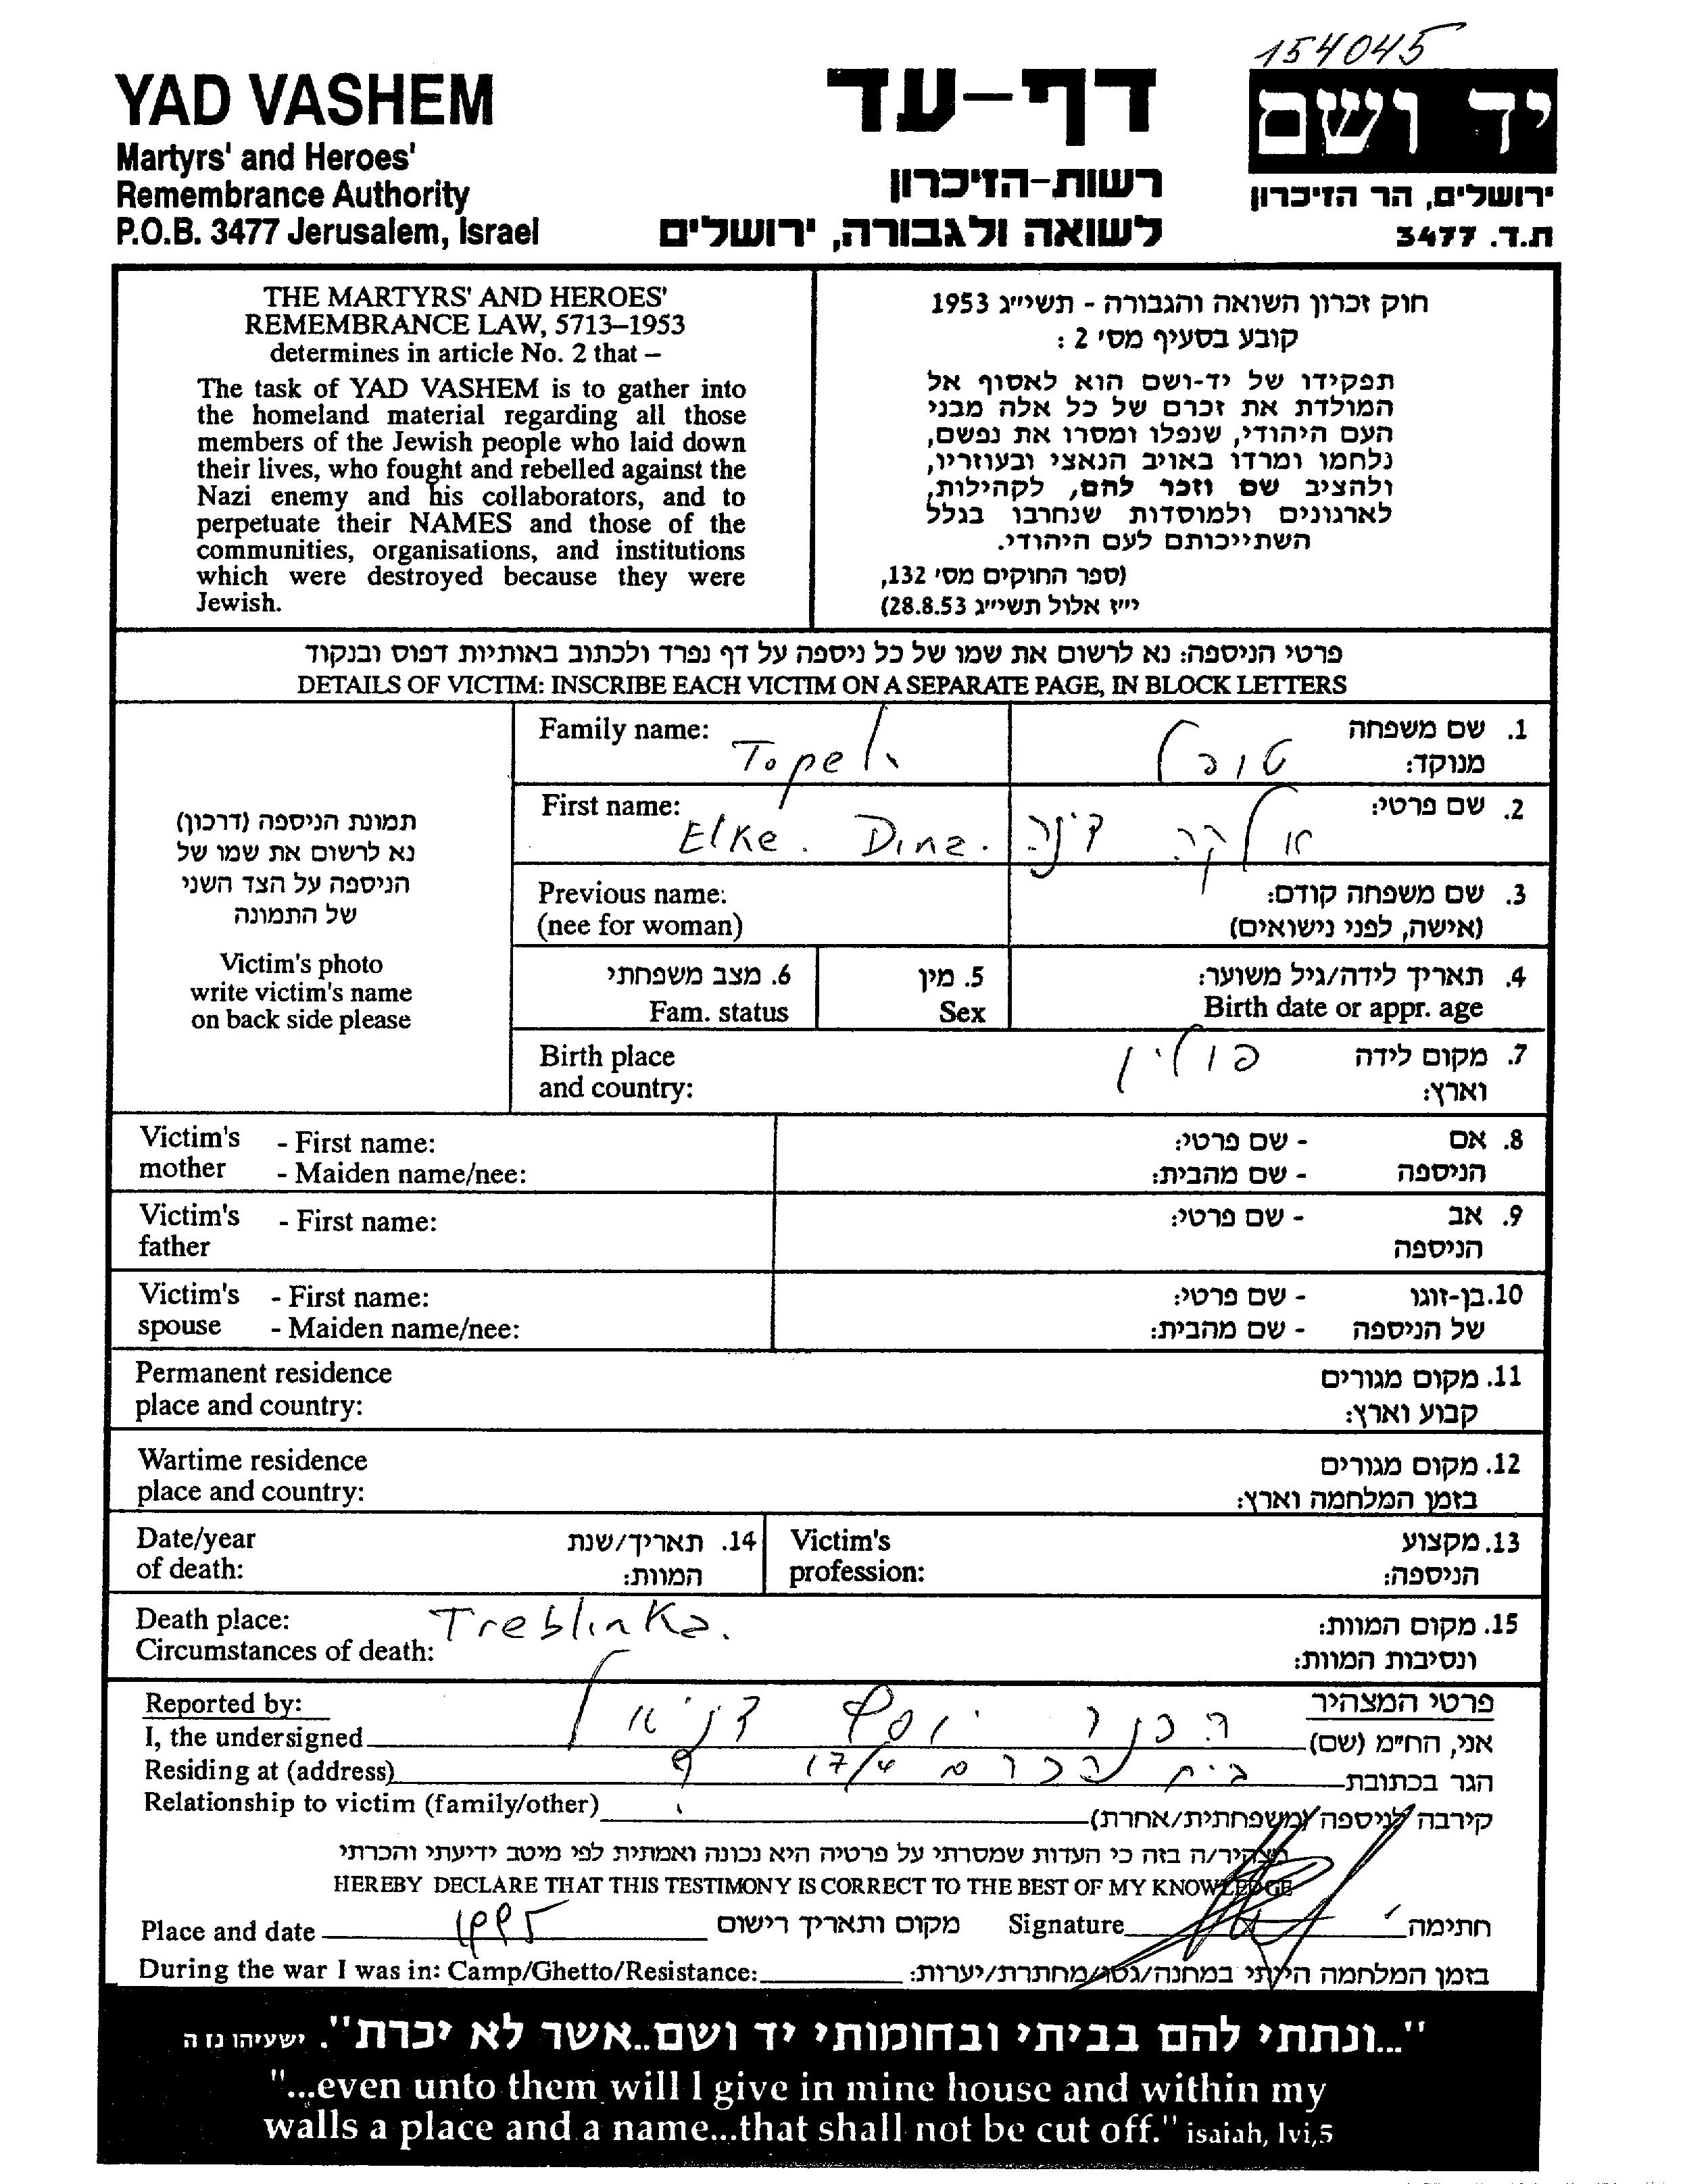 154045
YAD VASHEM
Martyrs' and Heroes'
Remembrance Authority
P.O.B. 3477 Jerusalem, Israel
דף-עד
רשות-הזיכרון
לשואה ולגבורה, ירושלים
יד ושם
ירושלים, הר הזיכרון
ת.ד. 3477
THE MARTYRS' AND HEROES'
REMEMBRANCE LAW, 5713–1953
determines in article No. 2 that –
The task of YAD VASHEM is to gather into
the homeland material regarding all those
members of the Jewish people who laid down
their lives, who fought and rebelled against the
Nazi enemy and his collaborators, and to
perpetuate their NAMES and those of the
communities, organisations, and institutions
which were destroyed because they were
Jewish.
חוק זכרון השואה והגבורה - תשי״ג 1953
קובע בסעיף מס׳ 2 :
תפקידו של יד-ושם הוא לאסוף אל
המולדת את זכרם של כל אלה מבני
העם היהודי, שנפלו ומסרו את נפשם,
נלחמו ומרדו באויב הנאצי ובעוזריו,
ולהציב שם וזכר להם, לקהילות,
לארגונים ולמוסדות שנחרבו בגלל
השתייכותם לעם היהודי.
(ספר החוקים מס׳ 132,
י״ז אלול תשי״ג 28.8.53)
פרטי הניספה: נא לרשום את שמו של כל ניספה על דף נפרד ולכתוב באותיות דפוס ובנקוד
DETAILS OF VICTIM: INSCRIBE EACH VICTIM ON A SEPARATE PAGE, IN BLOCK LETTERS
תמונת הניספה (דרכון)
נא לרשום את שמו של
הניספה על הצד השני
של התמונה
Victim's photo
write victim's name
on back side please
Family name: Topel
1. שם משפחה
מנוקד: טופל
First name: Elke. Dina.
2. שם פרטי: אלקה דינה
Previous name:
(nee for woman)
3. שם משפחה קודם:
(אישה, לפני נישואים)
6. מצב משפחתי
Fam. status
5. מין
Sex
4. תאריך לידה/גיל משוער:
Birth date or appr. age
Birth place
and country:
7. מקום לידה פולין
וארץ:
Victim's - First name:
mother - Maiden name/nee:
8. אם - שם פרטי:
הניספה - שם מהבית:
Victim's - First name:
father
9. אב - שם פרטי:
הניספה
Victim's - First name:
spouse - Maiden name/nee:
10. בן-זוגו - שם פרטי:
של הניספה - שם מהבית:
Permanent residence
place and country:
11. מקום מגורים
קבוע וארץ:
Wartime residence
place and country:
12. מקום מגורים
בזמן המלחמה וארץ:
Date/year
of death:
14. תאריך/שנת
המוות:
Victim's
profession:
13. מקצוע
הניספה:
Death place: Treblinka.
Circumstances of death:
15. מקום המוות:
ונסיבות המוות:
Reported by:
פרטי המצהיר
I, the undersigned יוסף דניאל אני, הח״מ (שם)
Residing at (address) בית הכרם 17/4 הגר בכתובת
Relationship to victim (family/other) קירבה לניספה (משפחתית/אחרת)
מצהיר/ה בזה כי העדות שמסרתי על פרטיה היא נכונה ואמתית לפי מיטב ידיעתי והכרתי
HEREBY DECLARE THAT THIS TESTIMONY IS CORRECT TO THE BEST OF MY KNOWLEDGE
Place and date 1995 מקום ותאריך רישום Signature חתימה
During the war I was in: Camp/Ghetto/Resistance: בזמן המלחמה הייתי במחנה/גטו/מחתרת/יערות:
"...ונתתי להם בביתי ובחומותי יד ושם..אשר לא יכרת". ישעיהו נז ה
"...even unto them will I give in mine house and within my
walls a place and a name...that shall not be cut off." isaiah, lvi,5